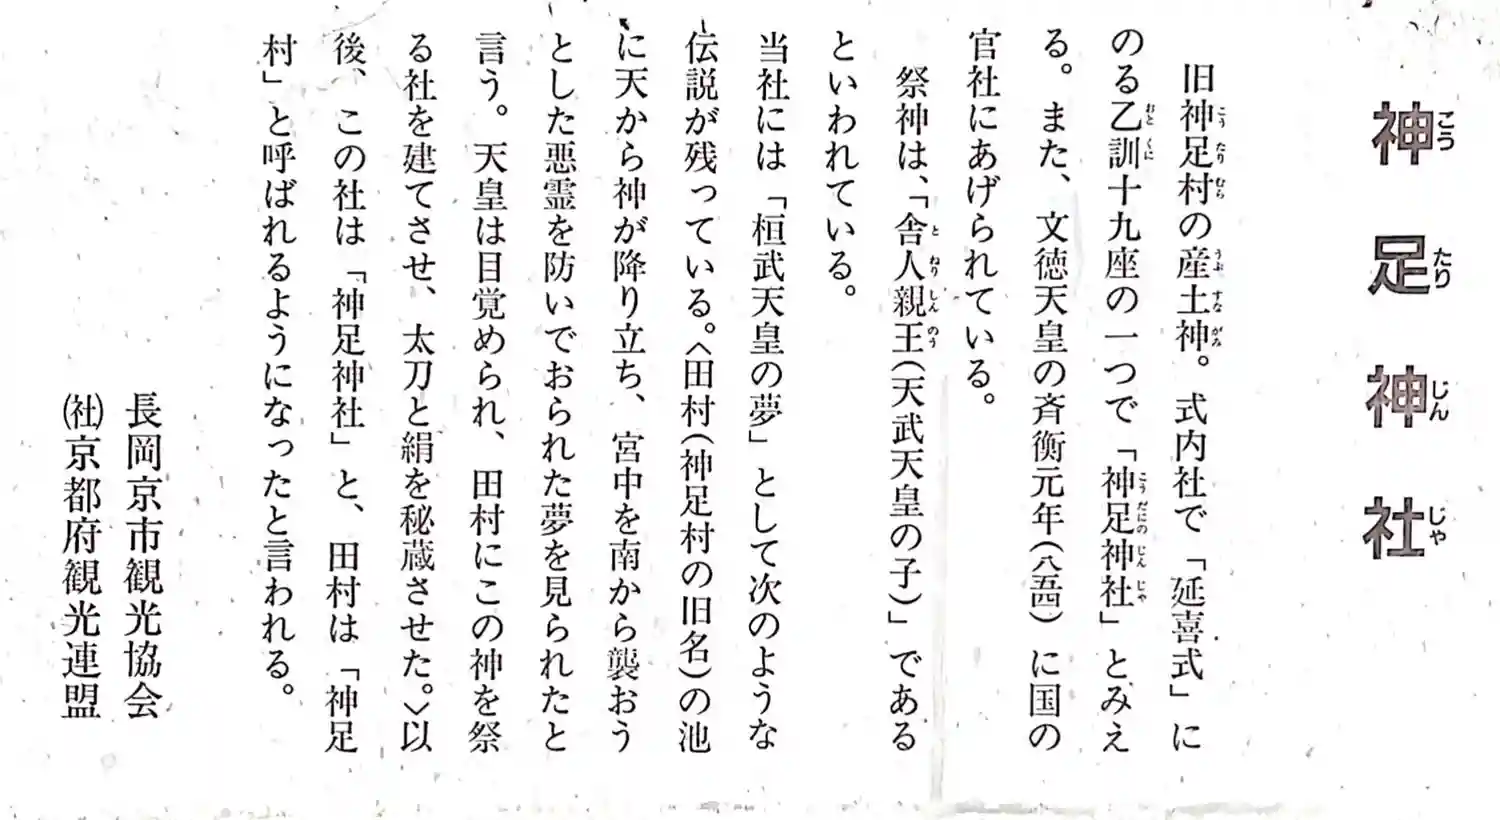 神足神社
旧神足村の産土神。式内社で「延喜式」に
のる乙訓十九座の一つで「神足神社」とみえ
る。また、文徳天皇の斉衡元年(八五四)に国の
官社にあげられている。
祭神は、「舎人親王(天武天皇の子)」である
といわれている。
当社には「桓武天皇の夢」として次のような
伝説が残っている。〈田村(神足村の旧名)の池
に天から神が降り立ち、宮中を南から襲おう
とした悪霊を防いでおられた夢を見られたと
言う。天皇は目覚められ、田村にこの神を祭
る社を建てさせ、太刀と絹を秘蔵させた。〉以
後、この社は「神足神社」と、田村は「神足
村」と呼ばれるようになったと言われる。
長岡京市観光協会
㈳京都府観光連盟